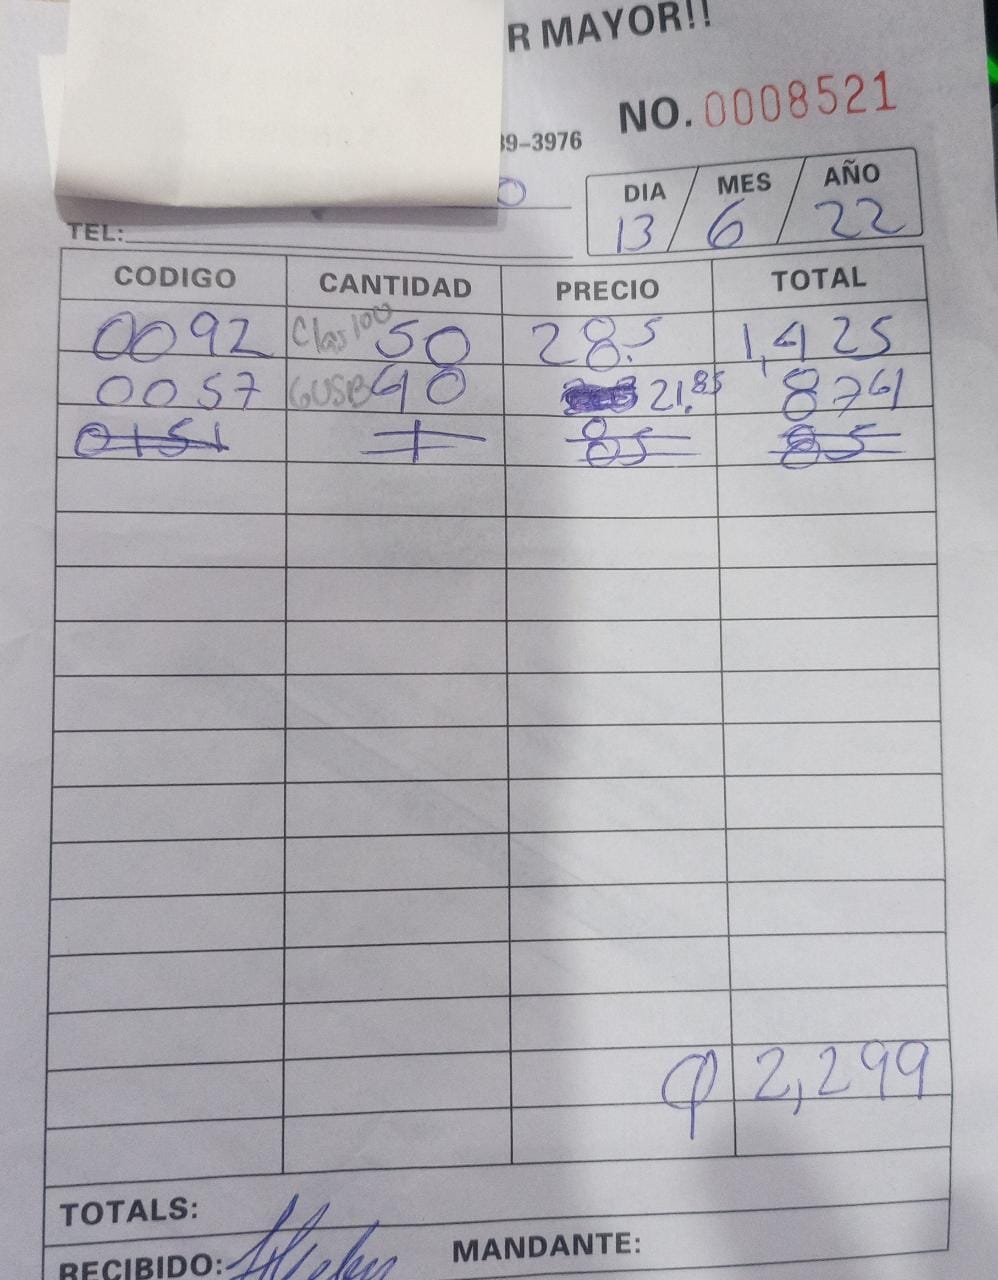 R MAYOR!!
NO. 0008521
39-3976
DIA MES AÑO
13 6 22
TEL:
CODIGO CANTIDAD PRECIO TOTAL
0092 Clas100 50 28.5 1,425
0057 GUSB 40 21.85 874
0151 1 85 85
Q 2,299
TOTALS:
RECIBIDO: MANDANTE: